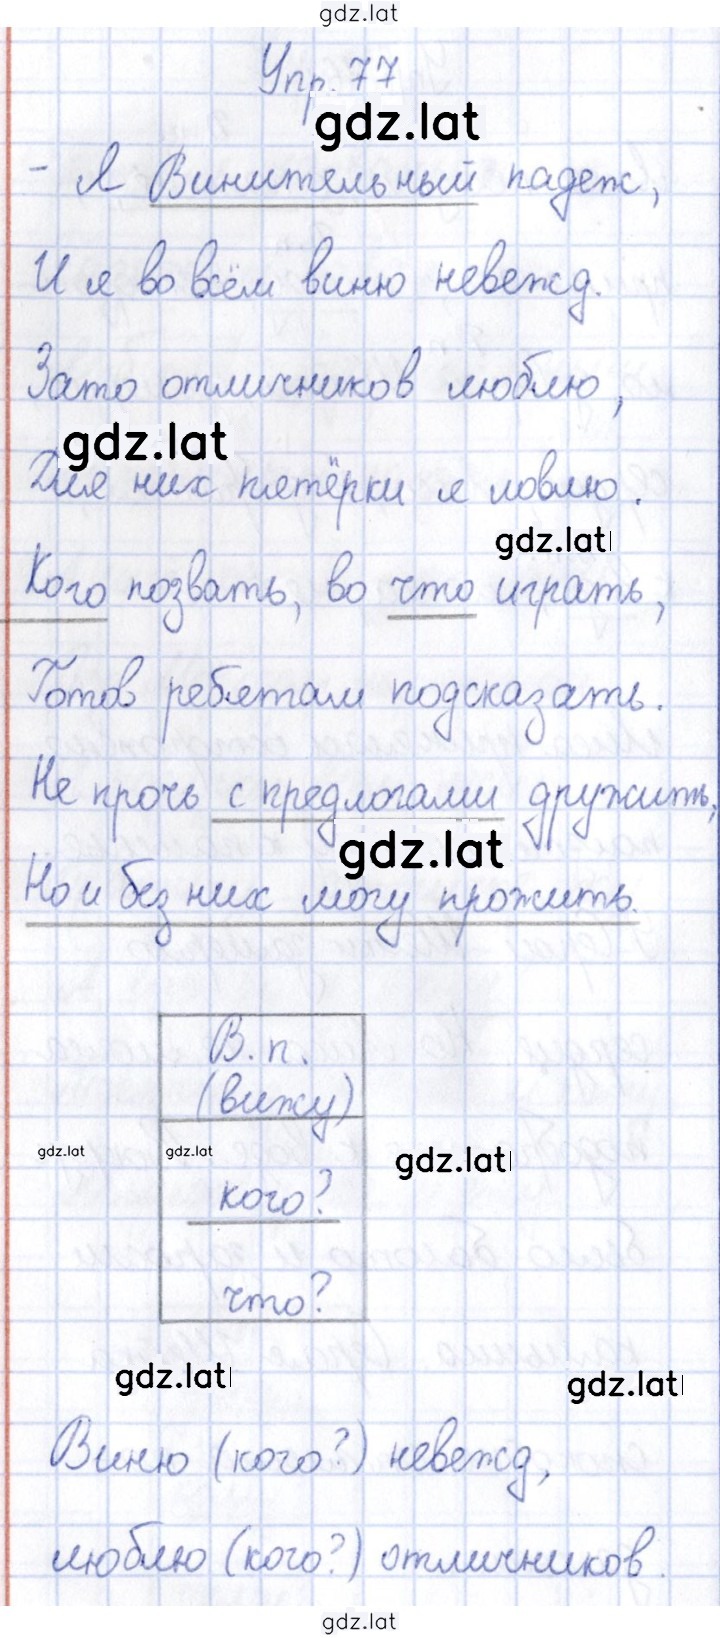 gdz.lat
Упр. 77
gdz.lat
- Я Винительный падеж,
И я во всём виню невежд.
Зато отличников люблю,
gdz.lat
Для них пятёрки я ловлю.
gdz.lat
Кого позвать, во что играть,
Готов ребятам подсказать.
Не прочь с предлогами дружить,
gdz.lat
Но и без них могу прожить.
В. п.
(вижу)
gdz.lat gdz.lat gdz.lat
кого?
что?
gdz.lat gdz.lat
Виню (кого?) невежд,
люблю (кого?) отличников.
gdz.lat